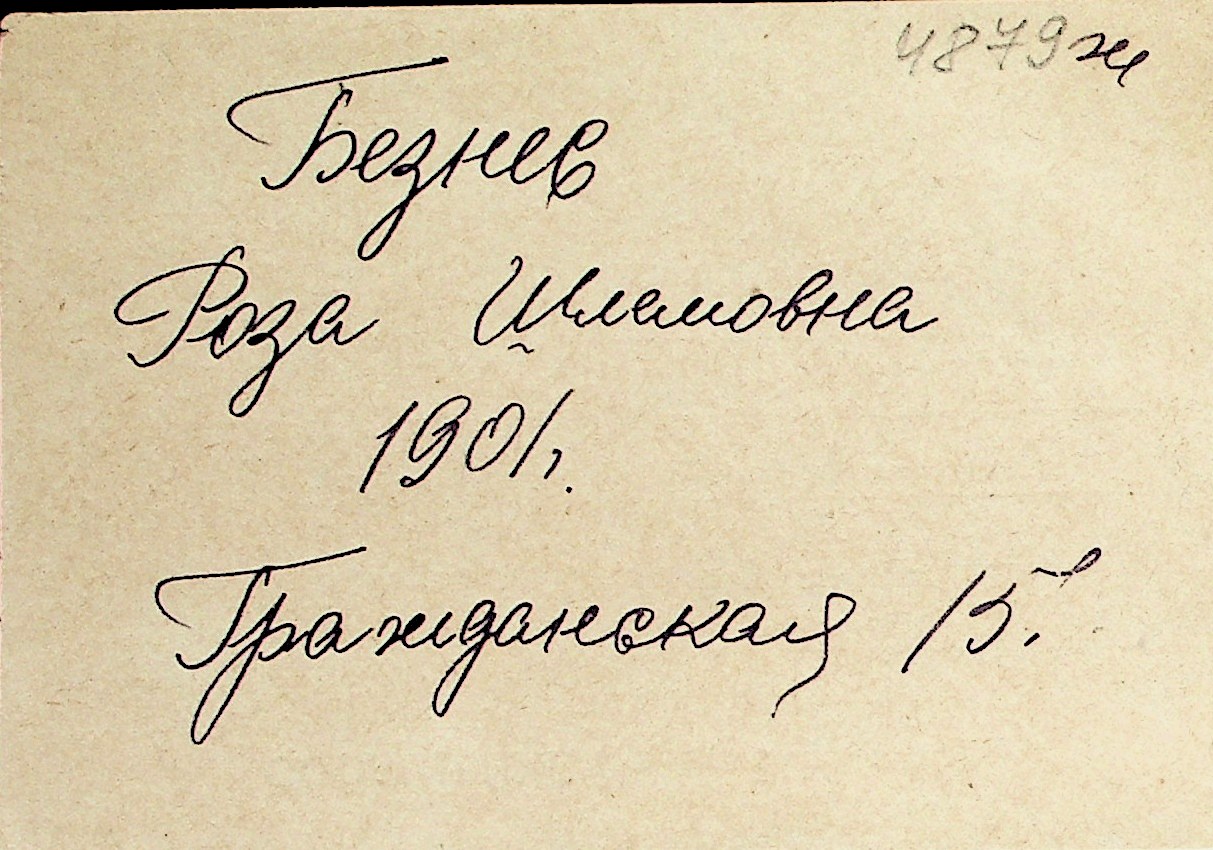 4879ж
Безнев
Роза Шламовна
1901г.
Гражданская 15.